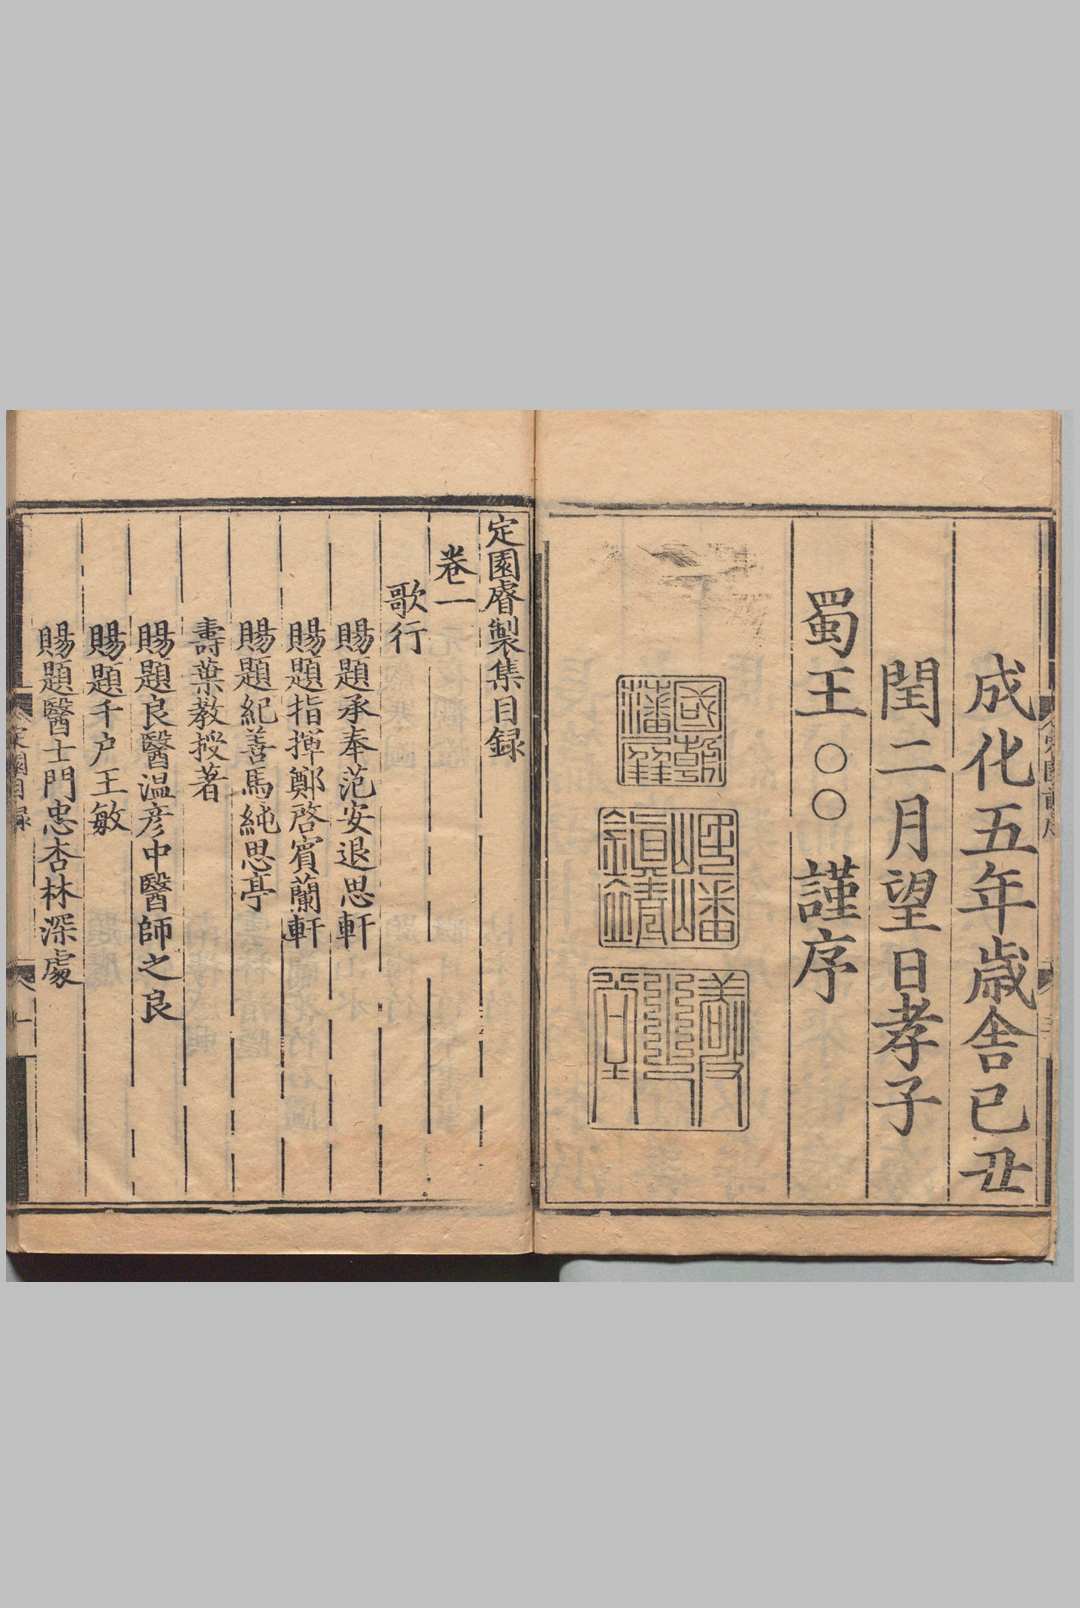 成化五年歲舍己丑
閏二月望日孝子
蜀王○○謹序
定園睿製集目録
卷一
歌行
賜題承奉范安退思軒
賜題指揮鄭啓賓蘭軒
賜題紀善馬純思亭
壽葉教授著
賜題良醫温彦中醫師之良
賜題千户王敏
賜題醫士門忠杏林深處